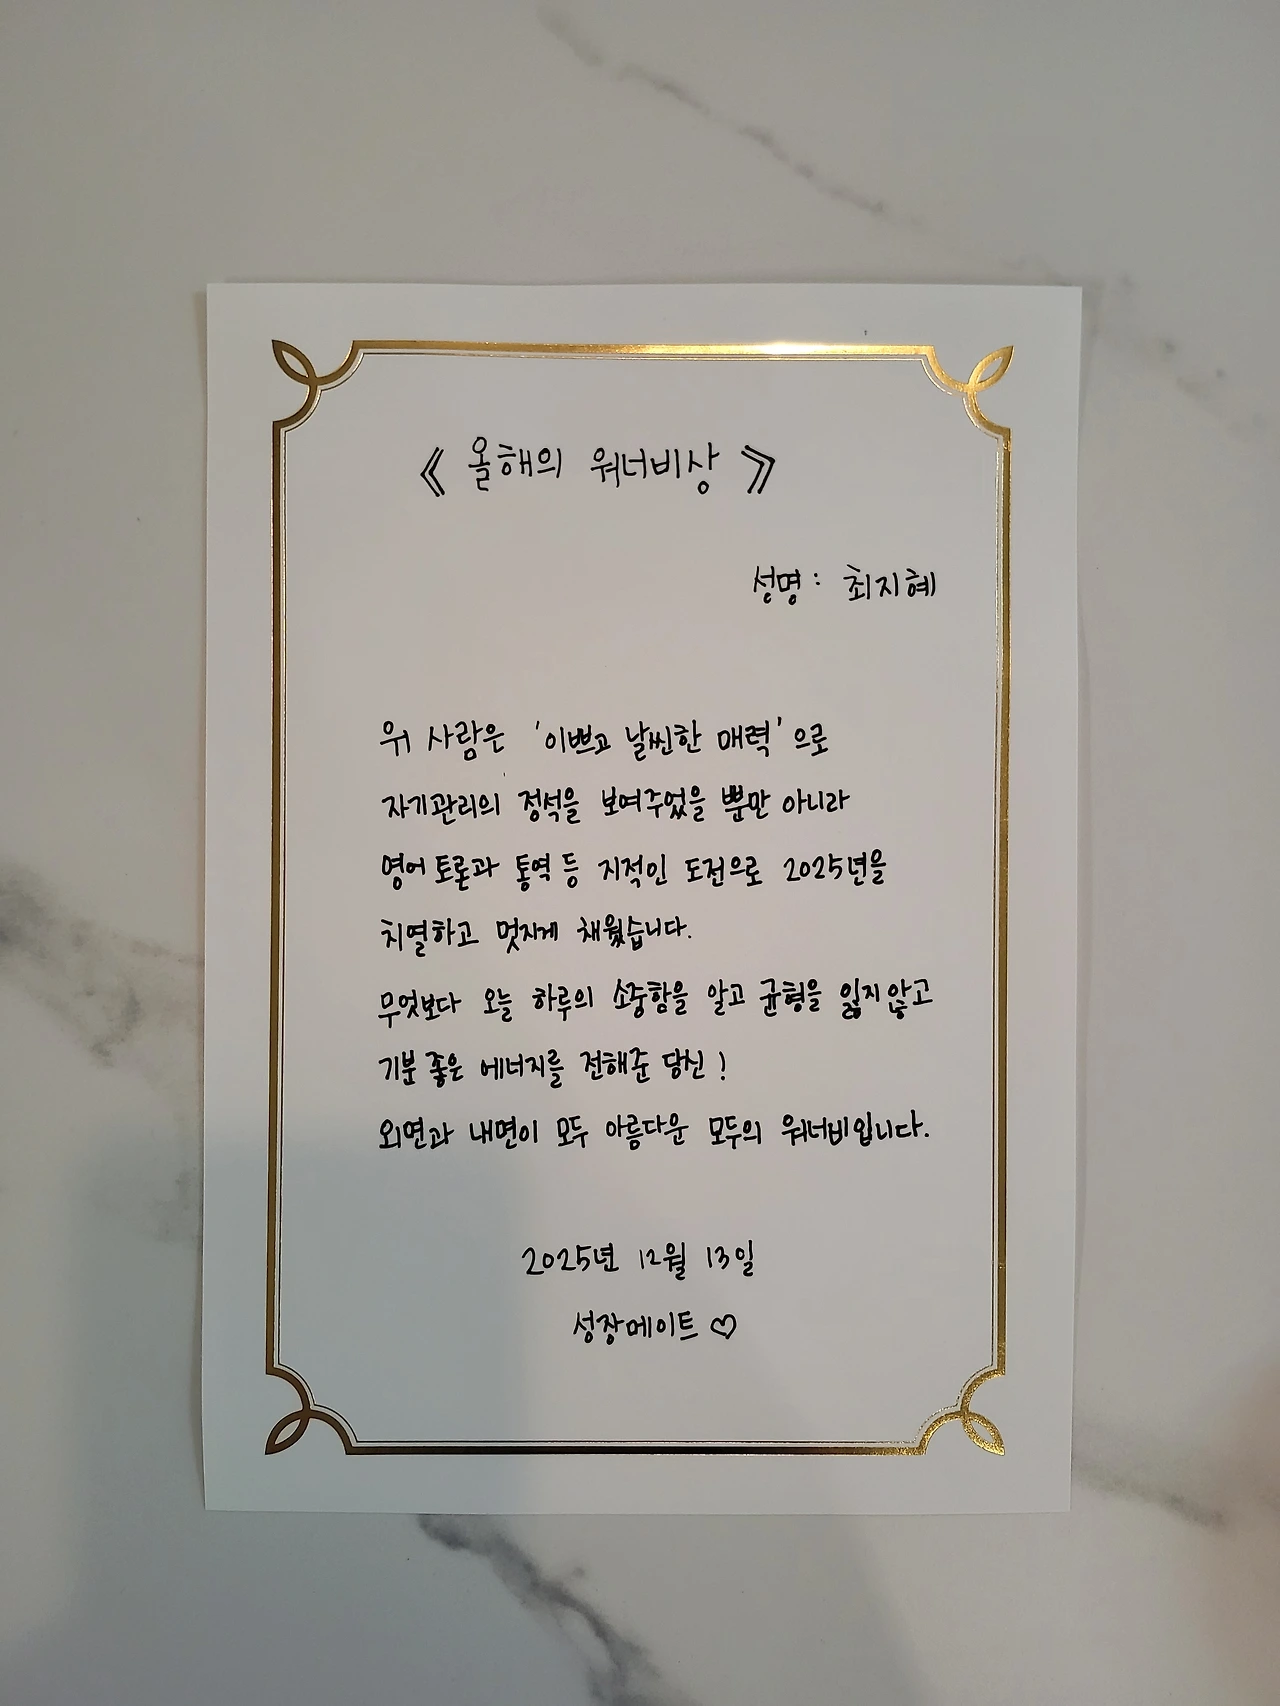 《 올해의 워너비상 》
성명 : 최지혜
위 사람은 '이쁘고 날씬한 매력'으로
자기관리의 정석을 보여주었을 뿐만 아니라
영어 토론과 통역 등 지적인 도전으로 2025년을
치열하고 멋지게 채웠습니다.
무엇보다 오늘 하루의 소중함을 알고 균형을 잃지 않고
기분 좋은 에너지를 전해준 당신!
외면과 내면이 모두 아름다운 모두의 워너비입니다.
2025년 12월 13일
성장메이트 ♡